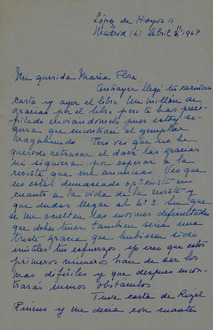 López de Hoyos 11
Madrid (6) Abril 2, 1967
Mi querida María Flora:
Anteayer llegó tu cariñosa
carta y ayer el libro. Un millón de
gracias por el libro, pero te has preci-
pitado enviándomelo pues estoy se-
gura que encontrará el ejemplar
vagabundo. Pero veo que no he
querido retrasar el darte las gracias
ni siquiera por esperar a la
revista que me anuncias. Veo que
no estás demasiado optimista en
cuanto a la vida de la revista y
que dudas llegar al nº 3. Sin que
se me oculten las enormes dificultades
que debes tener también sería una
triste gracia que hubiesen sido
inútiles tus esfuerzos. Yo creo que estos
primeros números han de ser los
más difíciles y que después encon-
trarás menos obstáculos.
Tuve carta de
y me decía con cuanto